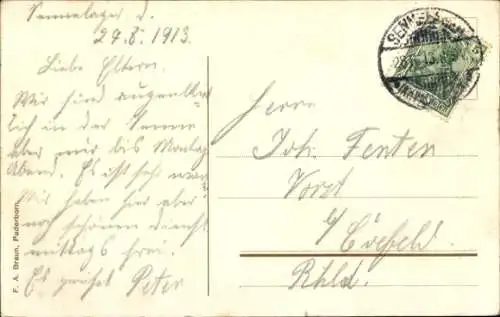 Sennelager d.
24.8.1913.
Liebe Eltern.
Wir sind augenblick
lich in der Senne
aber nur bis Montag
Abend. Es ist sehr warm
Wir haben hier aber
noch schönen Dienst
mittags frei.
Es grüßt Peter
Herrn
Joh. Fenten
Vorst
b/ Crefeld.
Rhld.
F. A. Braun, Paderborn.